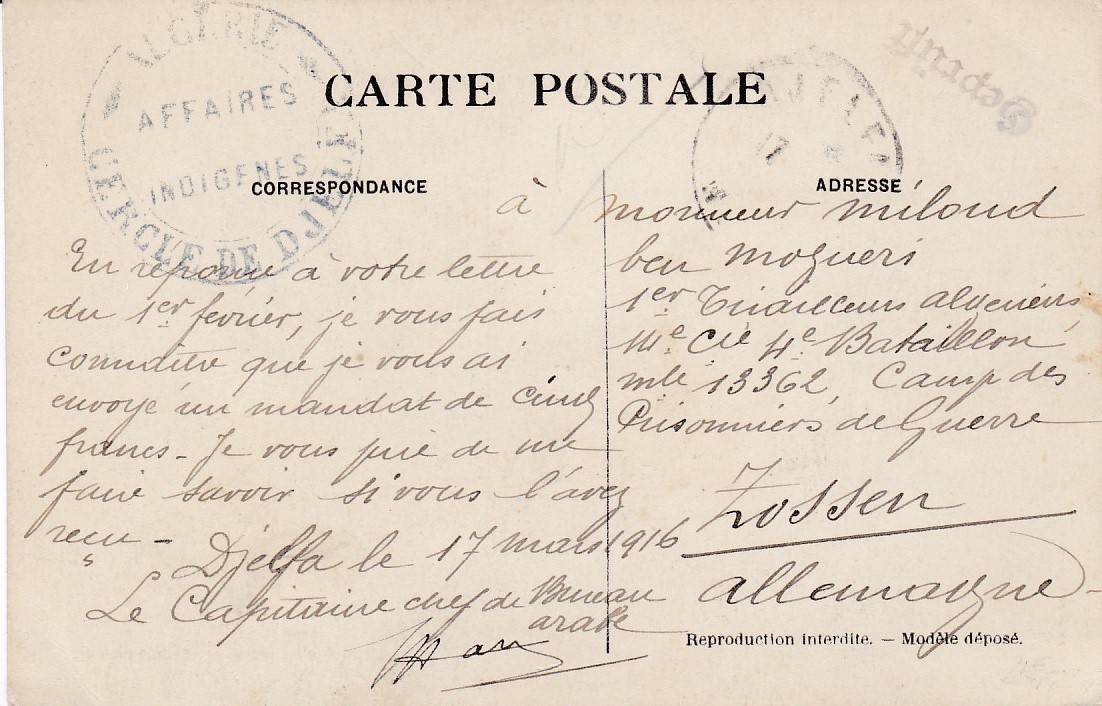 ALGÉRIE
AFFAIRES
INDIGÈNES
CERCLE DE DJELFA
CARTE POSTALE
DJELFA
17
Geprüft
CORRESPONDANCE
ADRESSE
En réponse à votre lettre
du 1er février, je vous fais
connaître que je vous ai
envoyé un mandat de cinq
francs - Je vous prie de me
faire savoir si vous l'avez
reçu -
Djelfa le 17 mars 1916
Le Capitaine chef de Bureau
arabe
à Monsieur Miloud
ben Mogueri
1er Tirailleurs algériens
14e Cie 4e Bataillon
mle 13362, Camp des
Prisonniers de Guerre
Zossen
Allemagne -
Reproduction interdite. — Modèle déposé.